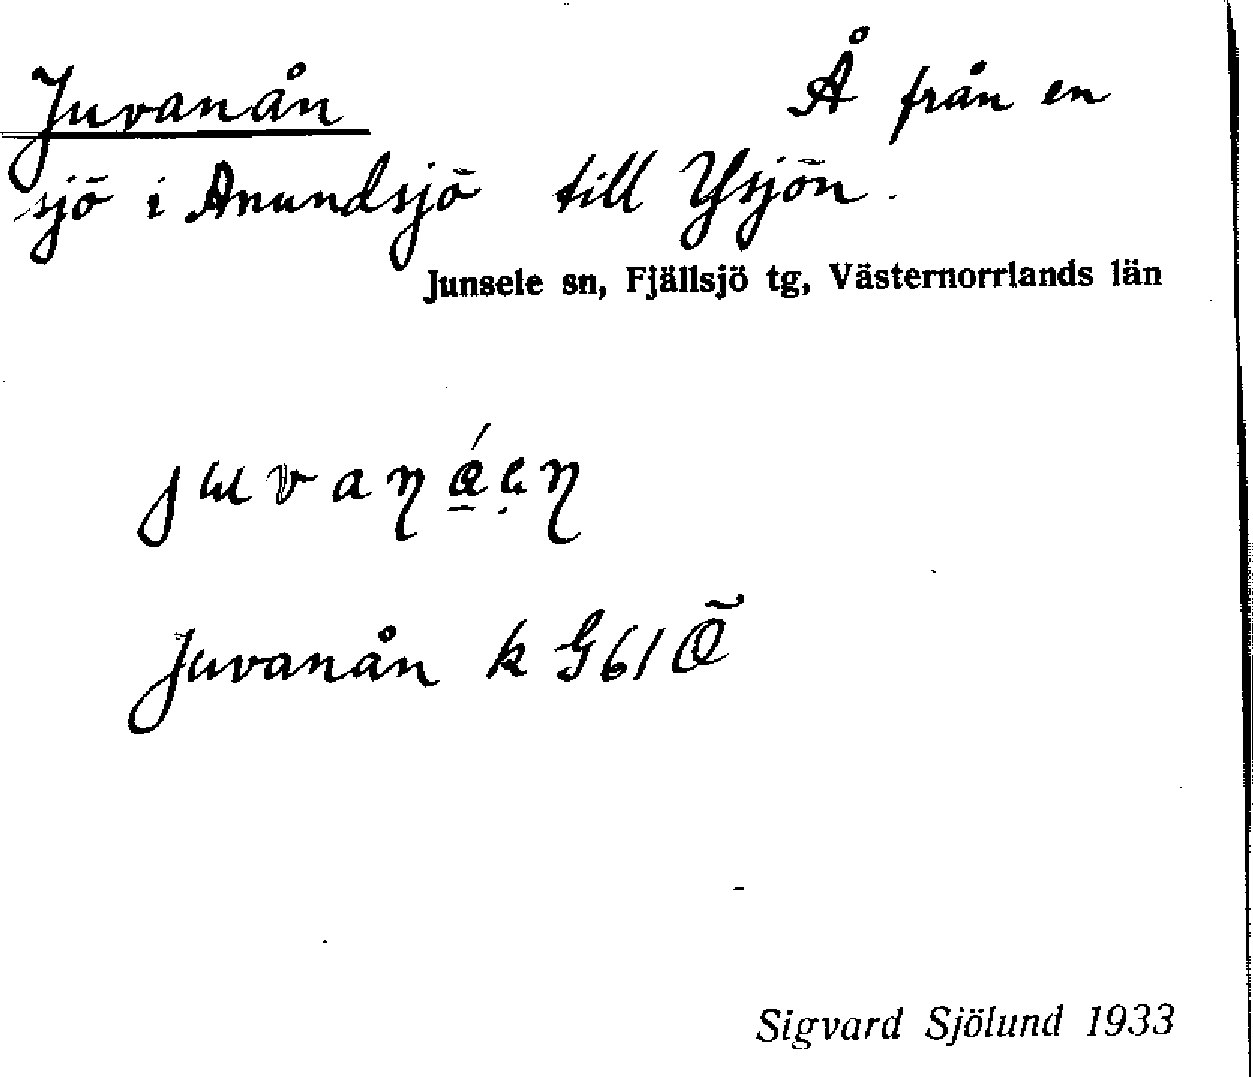 Juvanån Å från en
sjö i Anundsjö till Ysjön.
Junsele sn, Fjällsjö tg, Västernorrlands län
Juvanån k G61 Ö
Sigvard Sjölund 1933